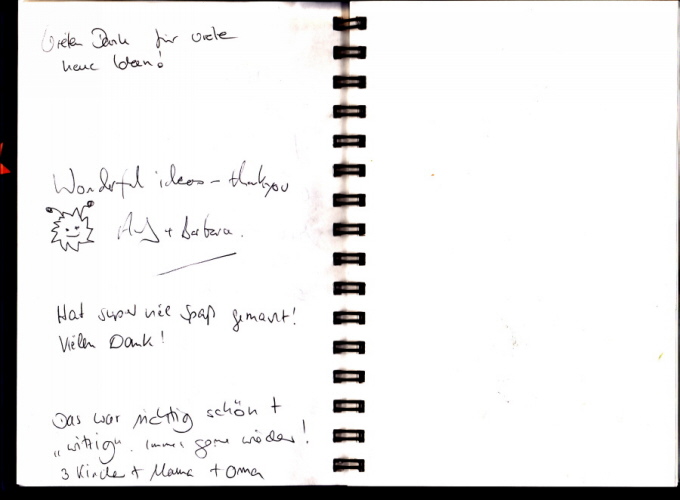 Vielen Dank für viele
neue Ideen!
Wonderful ideas – thank you
Andy + Barbara.
Hat super viel Spaß gemacht!
Vielen Dank!
Das war richtig schön +
"witzig". Immer gerne wieder!
3 Kinder + Mama + Oma